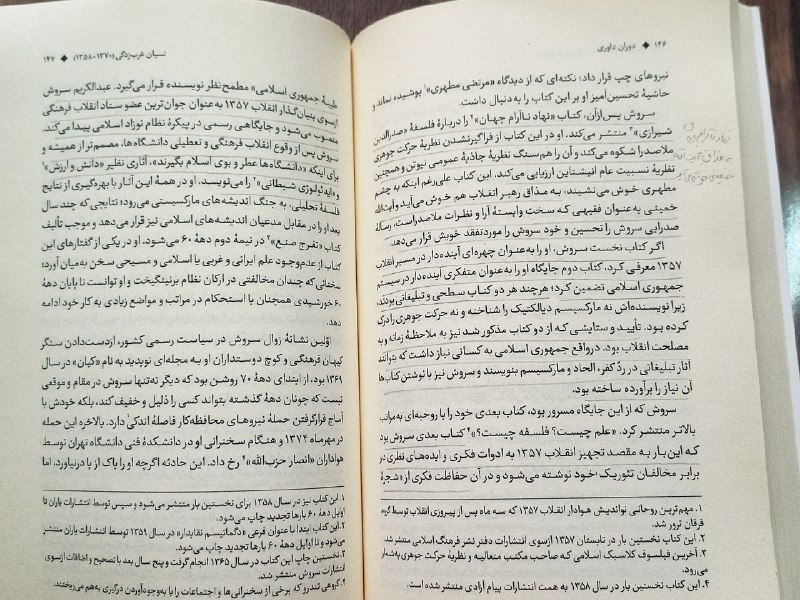 ۱۴۶ ◆ دوران داوری
نیروهای چپ قرار داد؛ نکته‌ای که از دیدگاه «مرتضی مطهری»۱ پوشیده نماند و
حاشیهٔ تحسین‌آمیز او بر این کتاب را به‌دنبال داشت.
سروش پس‌ازآن، کتاب «نهاد ناآرام جهان»۲ را دربارهٔ فلسفهٔ «صدرالدین
شیرازی»۳ منتشر می‌کند. او در این کتاب از فراگیرنشدن نظریهٔ حرکت جوهری
ملاصدرا شکوه می‌کند و آن را هم‌سنگ نظریهٔ جاذبهٔ عمومی نیوتن و همچنین
نظریهٔ نسبیت عام انیشتاین ارزیابی می‌کند. این کتاب علی‌رغم اینکه به چشم
مطهری خوش می‌نشیند، به مذاق رهبر انقلاب هم خوش می‌آید و آیت‌الله
خمینی به‌عنوان فقیهی که سخت وابستهٔ آرا و نظرات ملاصدراست، رسالهٔ
صدرایی سروش را تحسین و خود سروش را موردتفقد خویش قرار می‌دهد.
اگر کتاب نخست سروش، او را به‌عنوان چهره‌ای آینده‌دار در مسیر انقلاب
۱۳۵۷ معرفی کرد، کتاب دوم جایگاه او را به‌عنوان متفکری آینده‌دار در سیستم
جمهوری اسلامی تضمین کرد؛ هرچند هر دو کتاب سطحی و تبلیغاتی بودند،
زیرا نویسنده‌اش نه مارکسیسم دیالکتیک را شناخته و نه حرکت جوهری را درک
کرده بود. تأیید و ستایشی که از دو کتاب مذکور شد نیز به ملاحظهٔ زمانه و به
مصلحت انقلاب بود. درواقع جمهوری اسلامی به کسانی نیاز داشت که بتوانند
آثار تبلیغاتی در ردّ کفر، الحاد و مارکسیسم بنویسند و سروش نیز با نوشتن کتاب‌ها
آن نیاز را برآورده ساخته بود.
سروش که از این جایگاه مسرور بود، کتاب بعدی خود را با روحیه‌ای به‌مراتب
بالاتر منتشر کرد. «علم چیست؟ فلسفه چیست؟»۴ کتاب بعدی سروش بود
که این بار به مقصد تجهیز انقلاب ۱۳۵۷ به ادوات فکری و ایده‌های نظری در
برابر مخالفان تئوریک خود نوشته می‌شود و در آن حفاظت فکری از «شجرهٔ
۱. مهم‌ترین روحانی نواندیش هوادار انقلاب ۱۳۵۷ که سه ماه پس از پیروزی انقلاب توسط گروه
فرقان ترور شد.
۲. این کتاب نخستین بار در تابستان ۱۳۵۷ ازسوی انتشارات دفتر نشر فرهنگ اسلامی منتشر شد.
۳. آخرین فیلسوف کلاسیک اسلامی که صاحب مکتب متعالیه و نظریهٔ حرکت جوهری به‌شمار
می‌رود.
۴. این کتاب نخستین بار در سال ۱۳۵۸ به همت انتشارات پیام آزادی منتشر شده است.
نسیان غرب‌زدگی (۱۳۷۰-۱۳۵۸) ◆ ۱۴۷
طیبهٔ جمهوری اسلامی» مطمح‌نظر نویسنده قرار می‌گیرد. عبدالکریم سروش
ازسوی بنیان‌گذار انقلاب ۱۳۵۷ به‌عنوان جوان‌ترین عضو ستاد انقلاب فرهنگی
منصوب می‌شود و جایگاهی رسمی در پیکرهٔ نظام نوزاد اسلامی پیدا می‌کند.
سروش پس از وقوع انقلاب فرهنگی و تعطیلی دانشگاه‌ها، مصمم‌تر از همیشه و
برای اینکه «دانشگاه‌ها عطر و بوی اسلام بگیرند»، آثاری نظیر «دانش و ارزش»۱
و «ایدئولوژی شیطانی»۲ را می‌نویسد. او در همهٔ این آثار با بهره‌گیری از نتایج
فلسفهٔ تحلیلی، به جنگ اندیشه‌های مارکسیستی می‌رود؛ نتایجی که چند سال
بعد او را در مقابل مدعیان اندیشه‌های اسلامی نیز قرار می‌دهد و موجب تألیف
کتاب «تفرج صنع»۳ در نیمهٔ دوم دههٔ ۶۰ می‌شود. او در یکی از گفتارهای این
کتاب از عدم‌وجود علم ایرانی و غربی یا اسلامی و مسیحی سخن به‌میان آورد؛
سخنانی که چندان مخالفتی در ارکان نظام برنینگیخت و او توانست تا پایان دههٔ
۶۰ خورشیدی همچنان با استحکام در مراتب و مواضع زیادی به کار خود ادامه
دهد.
اوّلین نشانهٔ زوال سروش در سیاست رسمی کشور، ازدست‌دادن سنگر
کیهان فرهنگی و کوچ دوستداران او به مجله‌ای نوپدید به نام «کیان» در سال
۱۳۶۹ بود. از ابتدای دههٔ ۷۰ روشن بود که دیگر نه‌تنها سروش در مقام و موقعی
نیست که چونان دههٔ گذشته بتواند کسی را ذلیل و خفیف کند، بلکه خودش با
آماج قرارگرفتن حملهٔ نیروهای محافظه‌کار فاصلهٔ اندکی دارد. بالاخره این حمله
در مهرماه ۱۳۷۴ و هنگام سخنرانی او در دانشکدهٔ فنی دانشگاه تهران توسط
هواداران «انصار حزب‌الله»۴ رخ داد. این حادثه اگرچه او را پاک از پا درنیاورد، اما
۱. این کتاب نیز در سال ۱۳۵۸ برای نخستین بار منتشر می‌شود و سپس توسط انتشارات یاران تا
اوایل دههٔ ۶۰ بارها تجدید چاپ می‌شود.
۲. این کتاب ابتدا با عنوان فرعی «دگماتیسم نقابدار» در سال ۱۳۵۹ توسط انتشارات یاران منتشر
می‌شود و تا اوایل دههٔ ۶۰ بارها تجدید چاپ می‌شود.
۳. نخستین چاپ این کتاب در سال ۱۳۶۵ انجام گرفت و پنج سال بعد با تصحیح و اضافات ازسوی
انتشارات سروش منتشر شد.
۴. گروهی تندرو که برخی از سخنرانی‌ها و اجتماعات را با به‌وجودآوردن درگیری به‌هم می‌ریختند.